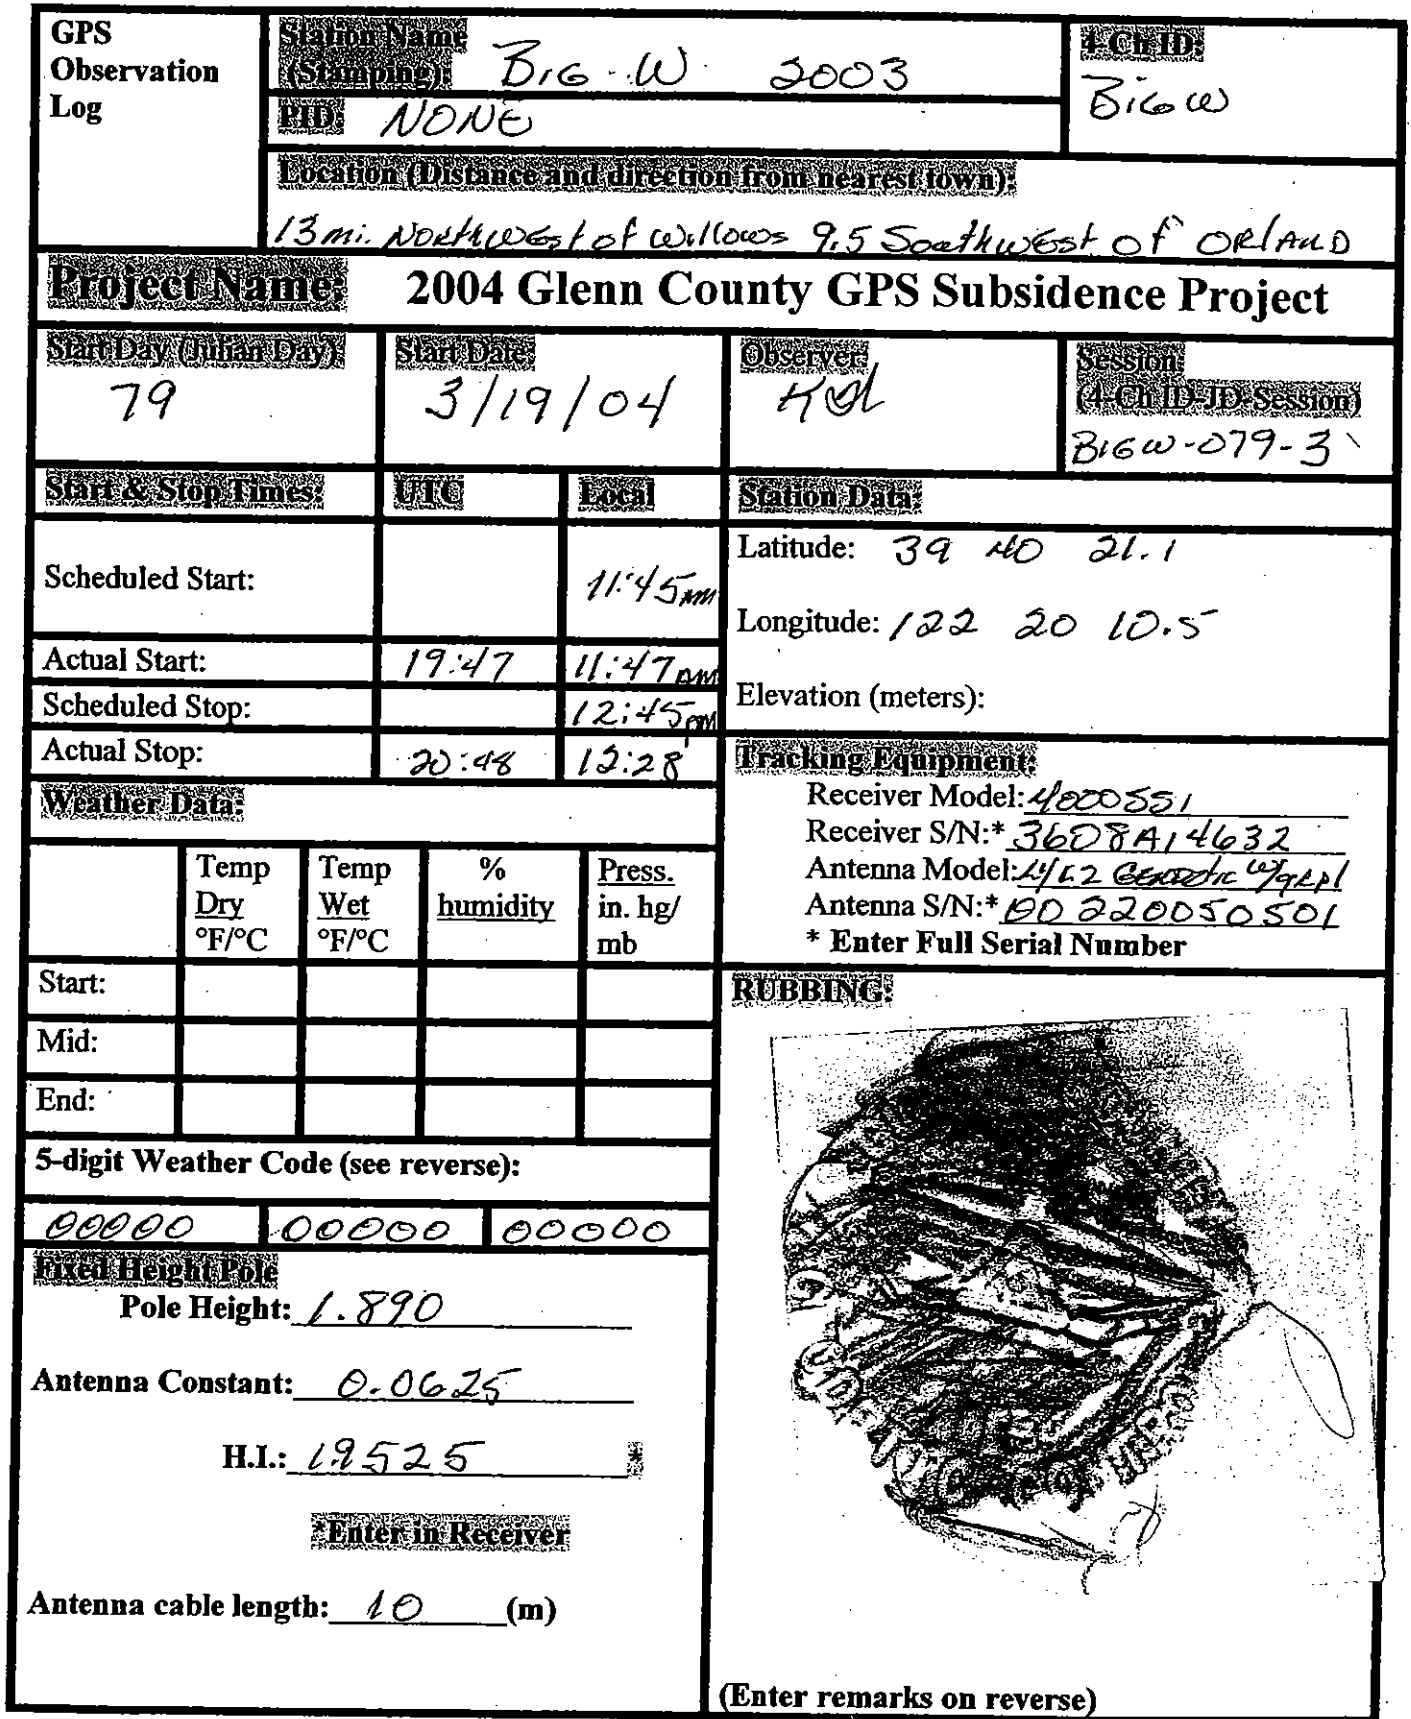 GPS
Observation
Log
Station Name
(Stamping): BIG W 2003
4-Ch ID:
BIGW
PID: NONE
Location (Distance and direction from nearest town):
13 mi. NorthWest of Willows 9.5 SouthWest of ORLAND
Project Name: 2004 Glenn County GPS Subsidence Project
Start Day (Julian Day)
79
Start Date
3/19/04
Observer:
Session:
(4-Ch ID-JD-Session)
BIGW-079-3
Start & Stop Times: UTC Local
Scheduled Start: 11:45 AM
Actual Start: 19:47 11:47 AM
Scheduled Stop: 12:45 PM
Actual Stop: 20:48 12:28
Station Data:
Latitude: 39 40 21.1
Longitude: 122 20 10.5
Elevation (meters):
Tracking Equipment:
Receiver Model: 4000SSI
Receiver S/N:* 3608A14632
Antenna Model: L1/L2 Geodetic W/GRPl
Antenna S/N:* 00 220050501
* Enter Full Serial Number
Weather Data:
Temp
Dry
°F/°C
Temp
Wet
°F/°C
%
humidity
Press.
in. hg/
mb
Start:
Mid:
End:
5-digit Weather Code (see reverse):
00000 00000 00000
Fixed Height Pole
Pole Height: 1.890
Antenna Constant: 0.0625
H.I.: 1.9525 *
*Enter in Receiver
Antenna cable length: 10 (m)
RUBBING:
(Enter remarks on reverse)